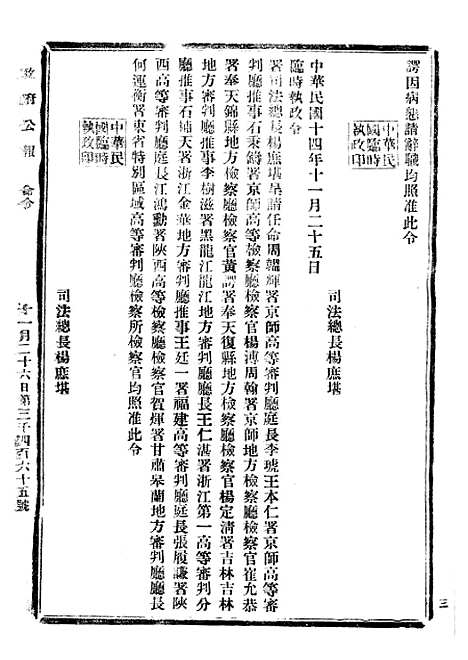 三
諤因病懇請辭職均照准此令
中華民
國臨時
執政印
司法總長楊庶堪
中華民國十四年十一月二十五日
臨時執政令
署司法總長楊庶堪呈請任命周韞輝署京師高等審判廳庭長李琥王本仁署京師高等審
判廳推事石秉鑄署京師高等檢察廳檢察官楊溥周翰署京師地方檢察廳檢察官崔允恭
署奉天錦縣地方檢察廳檢察官黃諤署奉天復縣地方檢察廳檢察官楊定清署吉林吉林
地方審判廳推事李樹滋署黑龍江龍江地方審判廳廳長王仁湛署浙江第一高等審判分
廳推事石補天署浙江金華地方審判廳推事王廷一署福建高等審判廳庭長張履謙署陝
西高等審判廳庭長江鴻勳署陝西高等檢察廳檢察官賀煇署甘肅皋蘭地方審判廳廳長
何運衡署東省特別區域高等審判廳檢察所檢察官均照准此令
中華民
國臨時
執政印
司法總長楊庶堪
政府公報
命令
十一月二十六日第三千四百六十五號